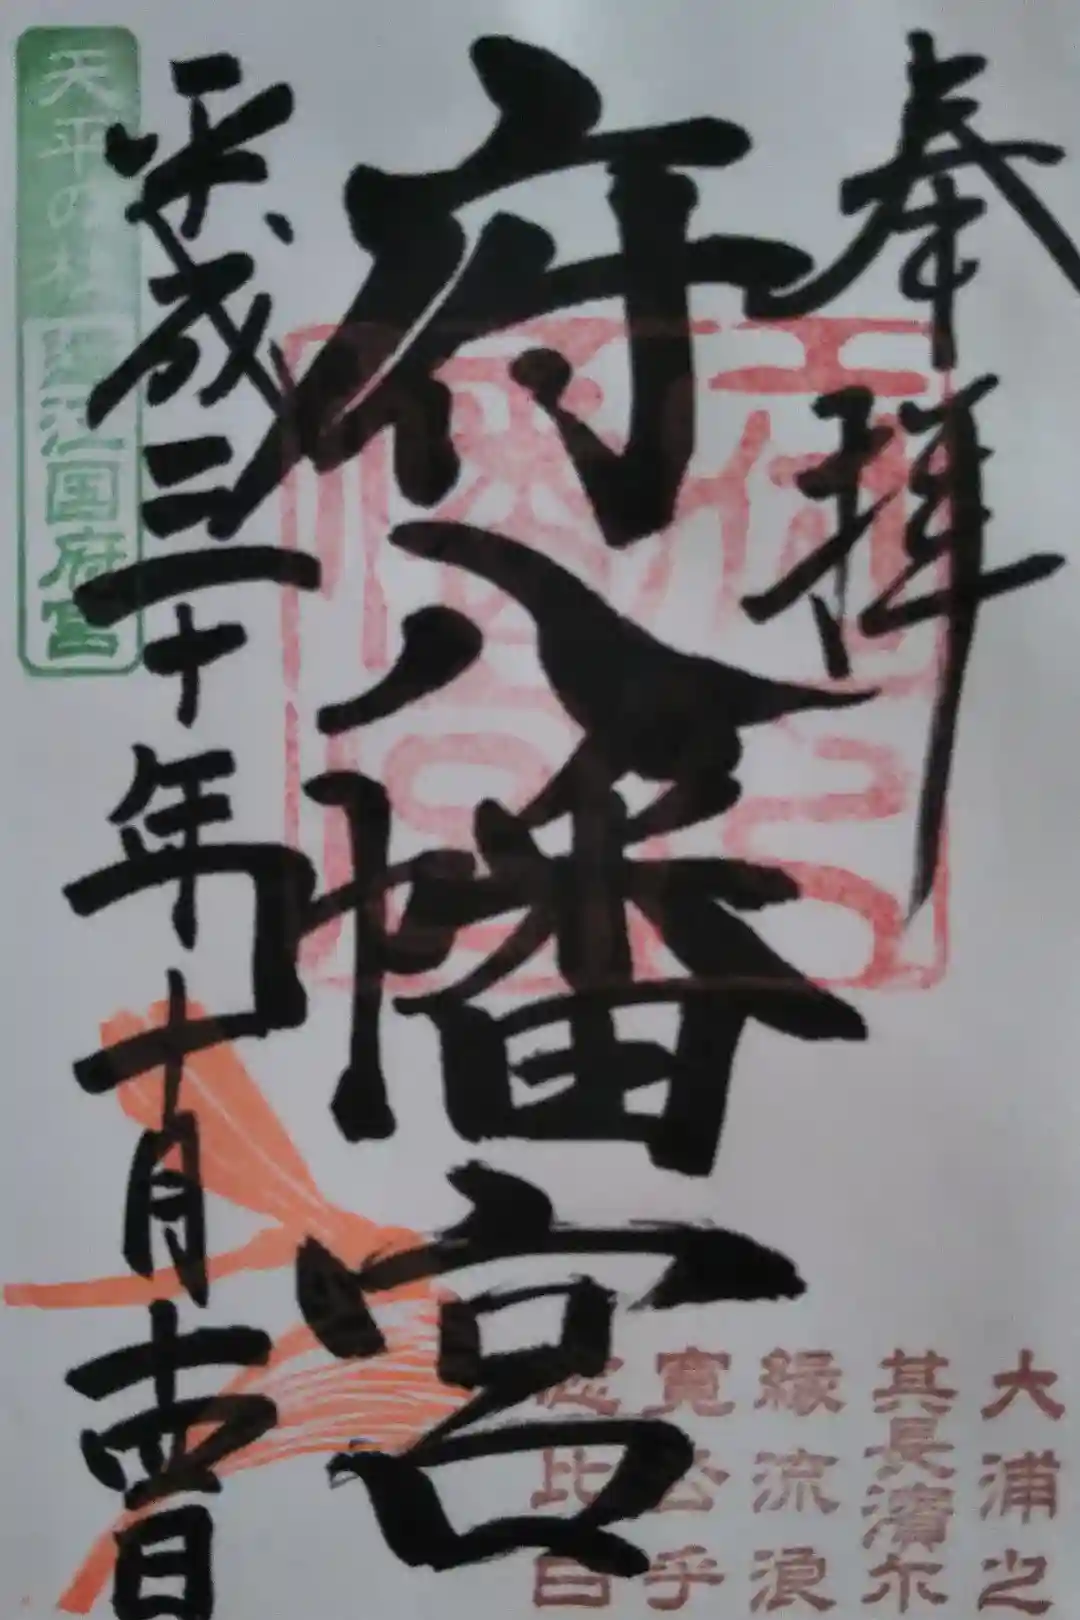 奉拝
府八幡宮
平成三十年十月十四日
天平の杜
遠江国府宮
大浦之
其長濱尓
縁流浪
寛公乎
念比日